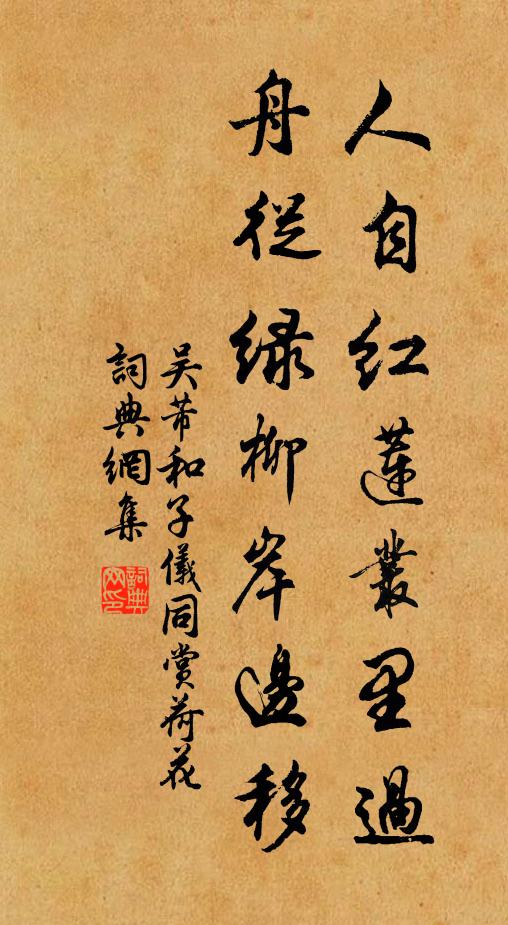 人自红莲叢里過
舟從绿柳岸邊移
吴芾和子儀同賞荷花
詞典網集
詞典網印